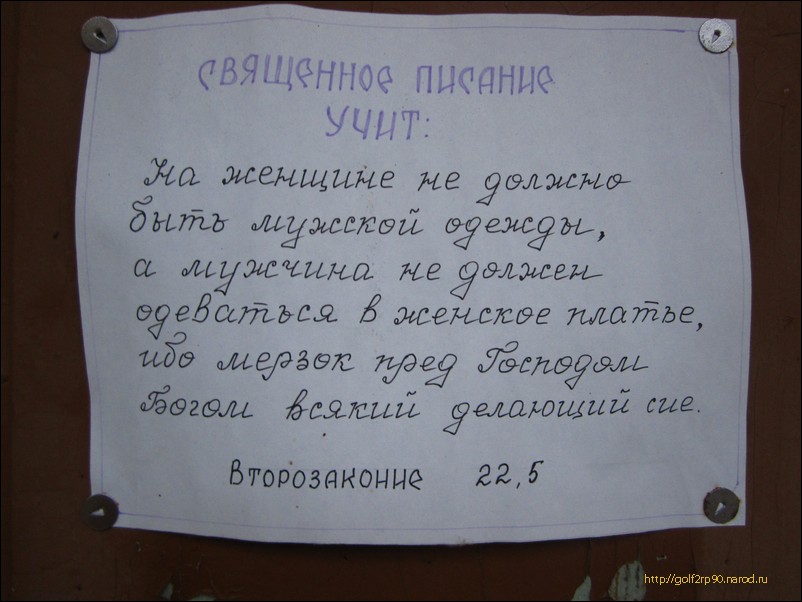 СВЯЩЕННОЕ ПИСАНИЕ
УЧИТ:
На женщине не должно
быть мужской одежды,
а мужчина не должен
одеваться в женское платье,
ибо мерзок пред Господом
Богом всякий делающий сие.
ВТОРОЗАКОНИЕ 22,5
http://golf2rp90.narod.ru